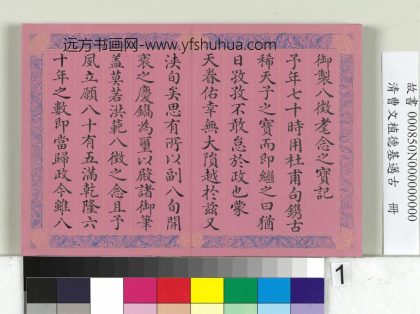 远方书画网-www.yfshuhua.com
御製八徵耄念之寶記
予年七十時用杜甫句鐫古
稀天子之寶而即繼之曰猶
日孜孜不敢怠於政也蒙
天眷佑幸無大隕越於茲又
浹旬矣思有所以副八旬開
袠之慶鐫為璽以殿諸御筆
蓋莫若洪範八徵之念且予
夙立願八十有五滿乾隆六
十年之數即當歸政今雖八
故書 000850N000000000
清曹文植德基邁古 冊
1